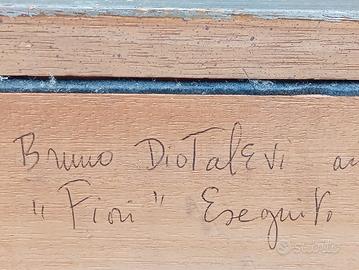 Bruno DioTalEvi an
"Fiori" Eseguito
subito